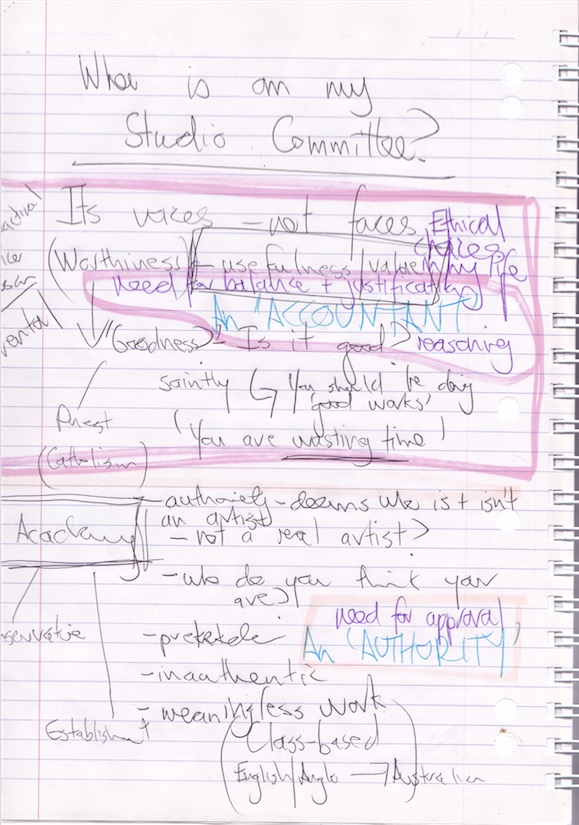 Who is on my
Studio Committee?
Its voices - not faces
Ethical
choices
in my life
(Worthiness) - usefulness / value
need for balance + justification
An "ACCOUNTANT"
"Goodness" - Is it good?
reasoning
saintly
You should be doing
'good works'
Priest
'You are wasting time'
(Catholism)
Academy
- authority - deems who is + isn't
an artist
- not a real artist?
- who do you think your
are?
need for approval
An 'AUTHORITY'
servative
- pretender
- inauthentic
- meaningless work
Establishment
Class-based
English/Anglo → Australian